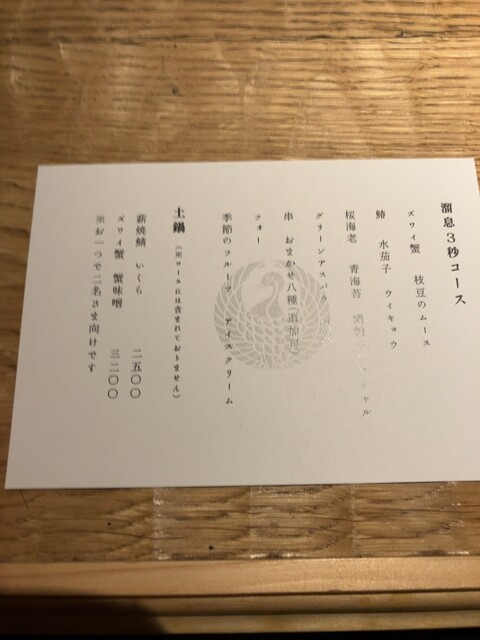 溜息3秒コース
ズワイ蟹 枝豆のムース
鰆 水茄子 ウイキョウ
桜海老 青海苔
グリーンアスパラ
串 おまかせ八種(追加可)
フォー
季節のフルーツ アイスクリーム
土鍋 (※コースには含まれておりません)
薪焼鯖 いくら 二五〇〇
ズワイ蟹 蟹味噌 三二〇〇
※お一つで二名さま向けです